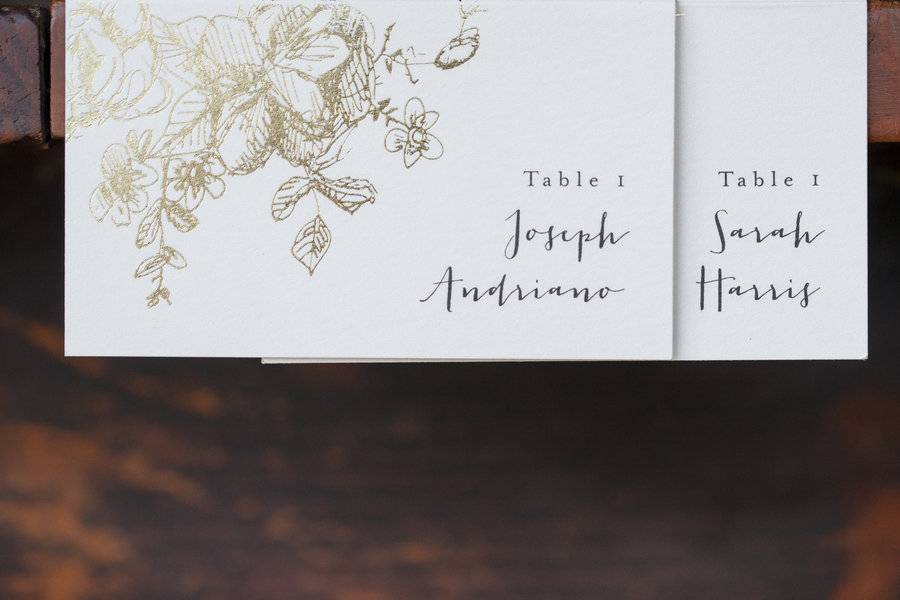 Table 1
Joseph
Andriano
Table 1
Sarah
Harris